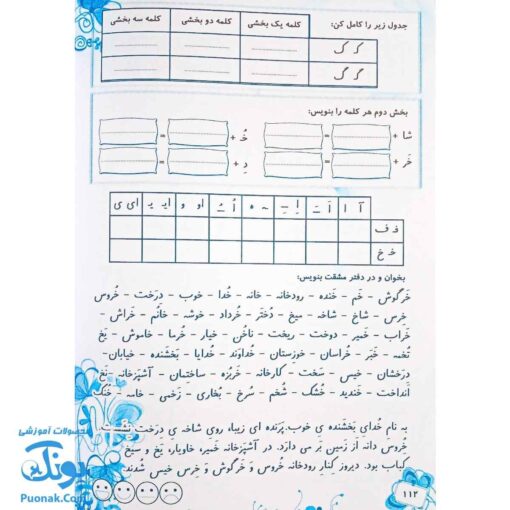 جدول زیر را کامل کن:
کلمه یک بخشی
کلمه دو بخشی
کلمه سه بخشی
ک ک
گ گ
بخش دوم هر کلمه را بنویس:
شا + =
خُ + =
خَر + =
دِ + =
آ ا
اَ ـَـ
اِ ـِـ ـه ه
اُ ـُـ
او و
ایـ یـ ی ای
ف ف
خ خ
بخوان و در دفتر مشقت بنویس:
خَرگوش – خَم – خَنده – رودخانه – خانه – خُدا – خوب – دِرَخت – خُروس
خِرس – شاخ – شاخه – میخ – دُختَر – خُرداد – خوشه – خانُم – خَراش –
خَراب – خَمیر – دوخت – ریخت – ناخُن – خیار – خُرما – خاموش – یَخ
تُخمه – خَبَر – خُراسان – خوزستان – خُداوَند – خُدایا – بَخشَنده – خیابان –
دِرَخشان – خیس – سَخت – کارخانه – خَربُزه – ساختِمان – آشپَزخانه – نَخ
اَنداخت – خَندید – خُشک – شُخم – سُرخ – بُخاری – زَخمی – خامه – خُنَک
به نامِ خُدایِ بَخشَنده یِ خوب. پَرَنده ای زیبا، رویِ شاخه یِ دِرَخت نِشَست.
خُروس دانه اَز زَمین بَر می دارَد. در آشپَزخانه خَمیر، خاویار، یَخ و سیخ
کَباب بود. دیروز کِنارِ رودخانه خُروس و خَرگوش و خِرس خیس شُدَند
۱۱۲
محصولات آموزشی
پونک
Puonak.Com